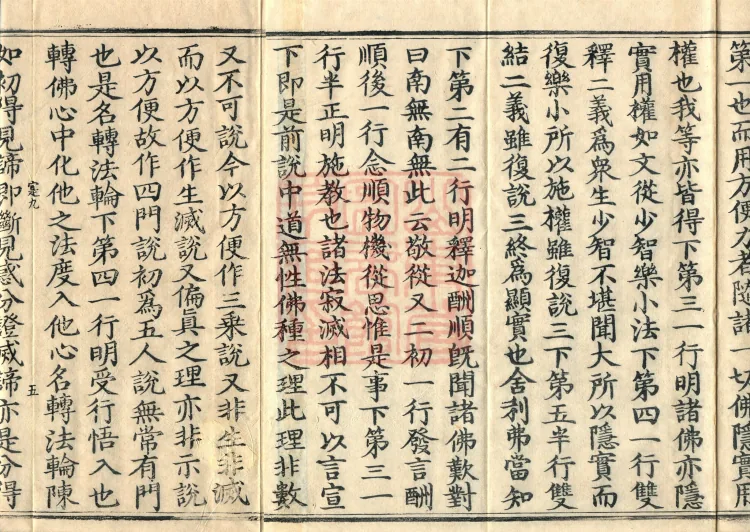 第一也而用方便力者隨諸一切佛隱實用
權也我等亦皆得下第三一行明諸佛亦隱
實用權如文從少智樂小法下第四一行雙
釋二義爲衆生少智不堪聞大所以隱實而
復樂小所以施權雖復說三下第五半行雙
結二義雖復說三終爲顯實也舍利弗當知
下第二有二行明釋迦酬順旣聞諸佛歎對
曰南無南無此云敬從又二初一行發言酬
順後一行念順物機從思惟是事下第三一
行半正明施教也諸法寂滅相不可以言宣
下即是前說中道無性佛種之理此理非數
又不可說今以方便作三乘說又非生非滅
而以方便作生滅說又偏眞之理亦非示說
以方便故作四門說初為五人說無常有門
也是名轉法輪下第四一行明受行悟入也
轉佛心中化他之法度入他心名轉法輪陳
㝎九
五
如初得見諦即斷見惑分證滅諦亦是分得